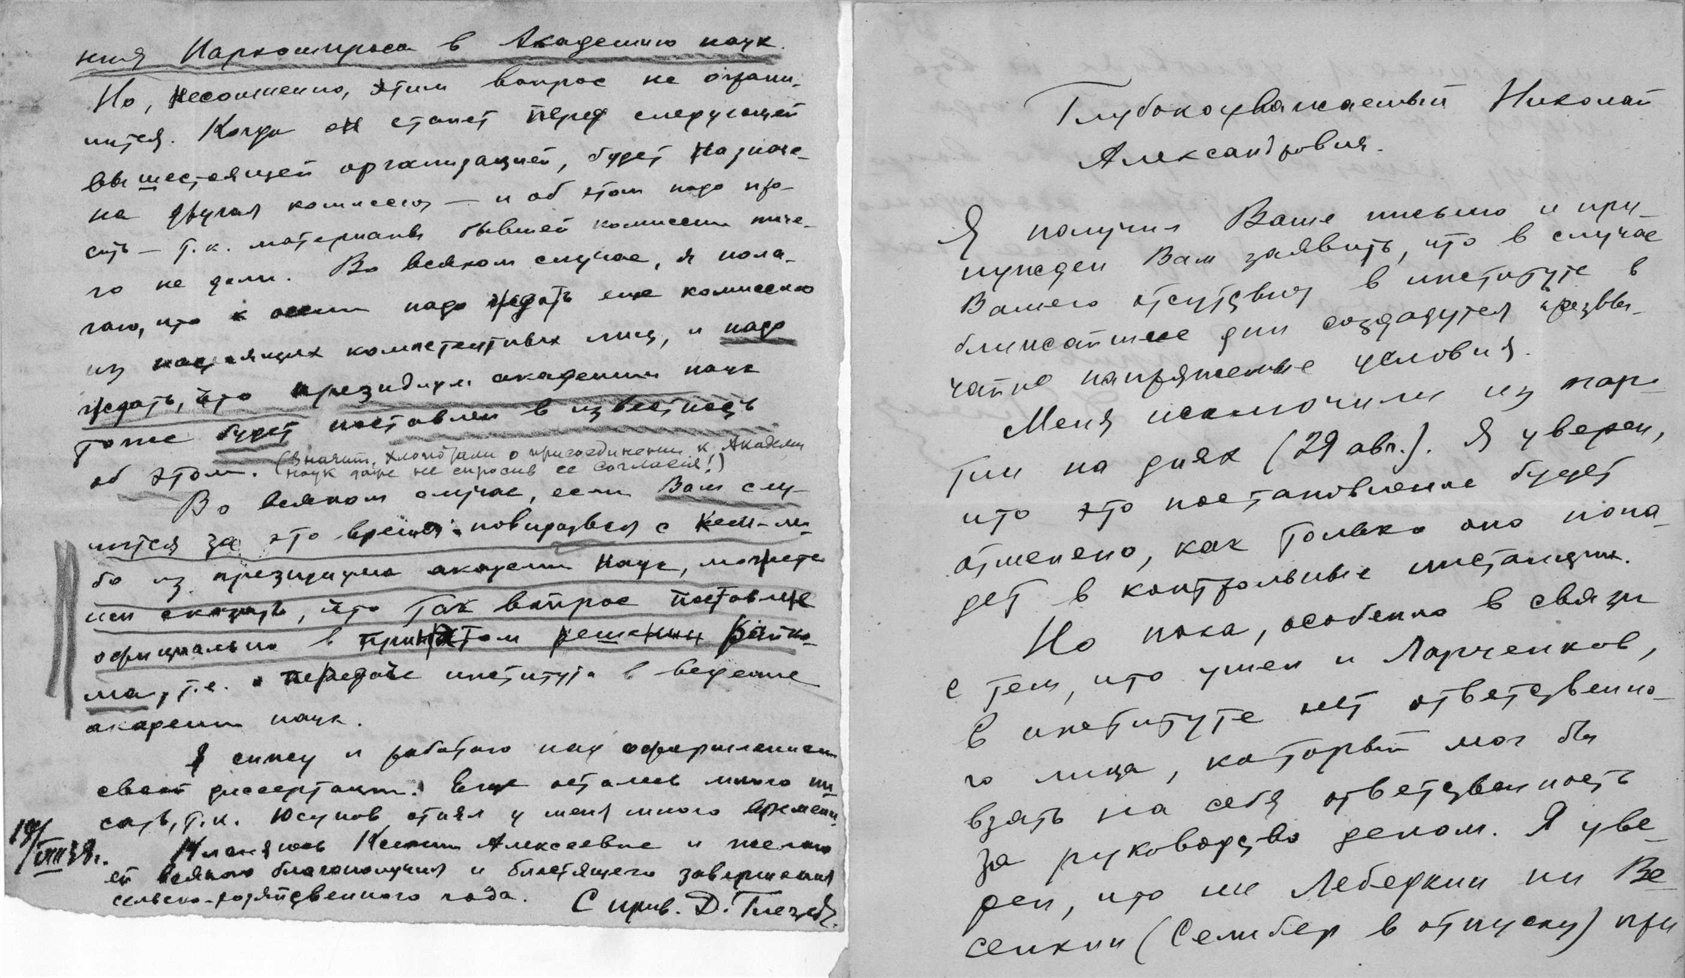 ния Наркомпроса в Академию наук.
Но, несомненно, этим вопрос не ограни-
чится. Когда он станет перед следующей
вышестоящей организацией, будет назначе-
на другая комиссия — и об этом надо про-
сить — т.к. материалы бывшей комиссии ниче-
го не дали. Во всяком случае, я пола-
гаю, что к осени надо ждать еще комиссию
из настоящих компетентных лиц, и надо
ждать, что президиум академии наук
тоже будет поставлен в известность
об этом. (Значит, хлопотали о присоединении к Академии
наук даже не спросив ее согласия!)
Во всяком случае, если Вам слу-
чится за это время повидаться с кем-ли-
бо из президиума академии наук, можете
им сказать, что так вопрос поставлен
официально в принятом решении
ма, т.е. о передаче института в ведение
академии наук.
Я сижу и работаю над оформлением
своей диссертации. Еще осталось много пи-
сать, т.к. Юсупов отнял у меня много времени.
Кланяюсь Ксении Алексеевне и желаю
ей всякого благополучия и блестящего завершения
сельско-хозяйственного года.
С прив. Д.
19/VIII 38 г.
Глубокоуважаемый Николай
Александрович.
Я получил Ваше письмо и при-
нужден Вам заявить, что в случае
Вашего отсутствия в институте в
ближайшие дни создадутся чрезвы-
чайно напряженные условия.
Меня исключили из пар-
тии на днях (29 авг.). Я уверен,
что это постановление будет
отменено, как только оно попа-
дет в контрольные инстанции.
Но пока, особенно в связи
с тем, что ушел и Ларченков,
в институте нет ответственно-
го лица, который мог бы
взять на себя ответственность
за руководство делом. Я уве-
рен, что ни Леберкин ни Ве-
селкин (Селибер в отпуску) при